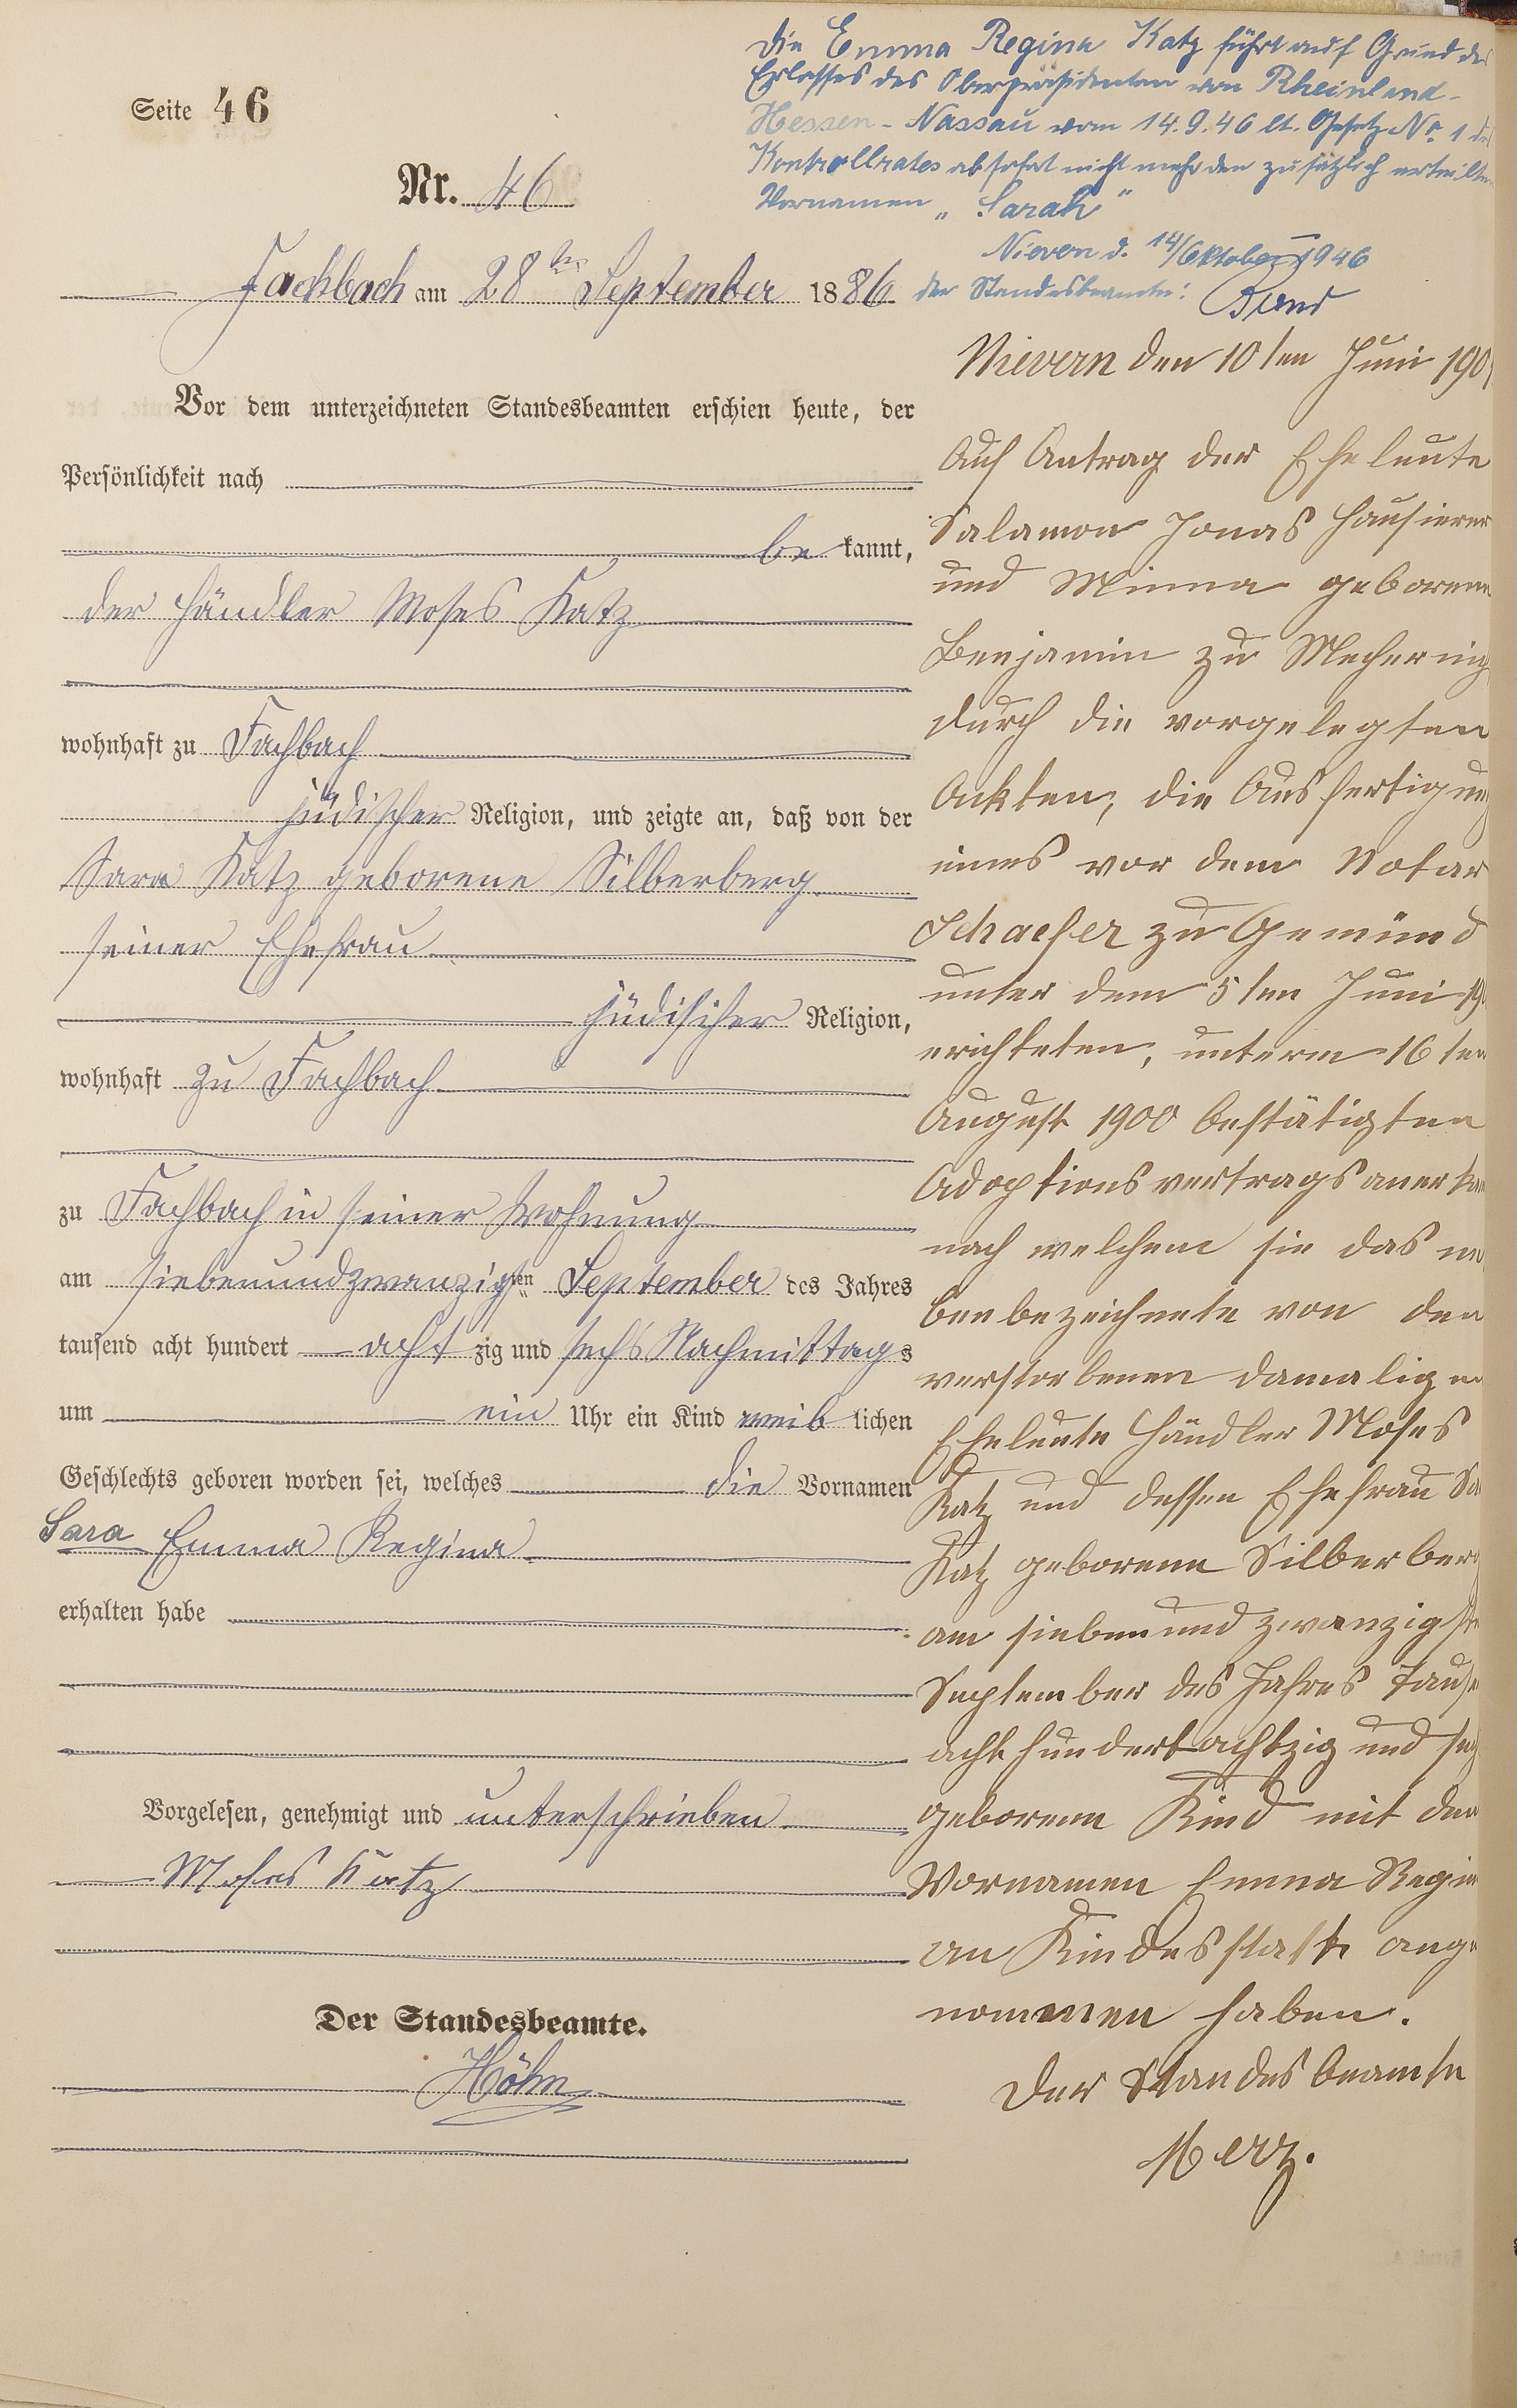 Die Emma Regina Katz führt auf Grund des
Erlasses des Oberpräsidenten von Rheinland-
Hessen-Nassau vom 14.9.46 lt. Gesetz No. 1 des
Kontrollrates ab sofort nicht mehr den zusätzlich erteilten
Vornamen „Sarah"
Nievern d. 14/Oktober 1946
der Standesbeamte:
Seite 46
Nr. 46
Fachbach am 28ten September 1886
Vor dem unterzeichneten Standesbeamten erschien heute, der
Persönlichkeit nach
be kannt,
der Händler Moses Katz
wohnhaft zu Fachbach
jüdischer Religion, und zeigte an, daß von der
Sara Katz geborene Silberberg
seiner Ehefrau
jüdischer Religion,
wohnhaft zu Fachbach
zu Fachbach in seiner Wohnung
am siebenundzwanzigsten September des Jahres
tausend acht hundert acht zig und sechs Nachmittags
um ein Uhr ein Kind weib lichen
Geschlechts geboren worden sei, welches die Vornamen
Sara Emma Regina
erhalten habe
Vorgelesen, genehmigt und unterschrieben
Moses Katz
Der Standesbeamte.
Höhn
Nievern den 10ten Juni 190
Auf Antrag der Eheleute
Salamon Jonas Hausierer
und Minna geborene
Benjamin zu Mechernig
durch die vorgelegten
Ackten, die Ausfertigung
eines vor dem Notar
Schaefer zu Gemünd
unter dem 5ten Juni 190
erichteten, unterm 16ten
August 1900 bestätigten
Adoptionsvertrags anerkan
nach welchem sie das ne
benbezeichnete von den
verstorbenen damaligen
Eheleute Händler Moses
Katz und dessen Ehefrau Sa
Katz geborene Silberberg
am siebenundzwanzigsten
September des Jahres Tause
acht hundert achtzig und sech
geborene Kind mit den
Vornamen Emma Regin
an Kindesstatt ange
nommen haben.
Der Standesbeamte
Merz.